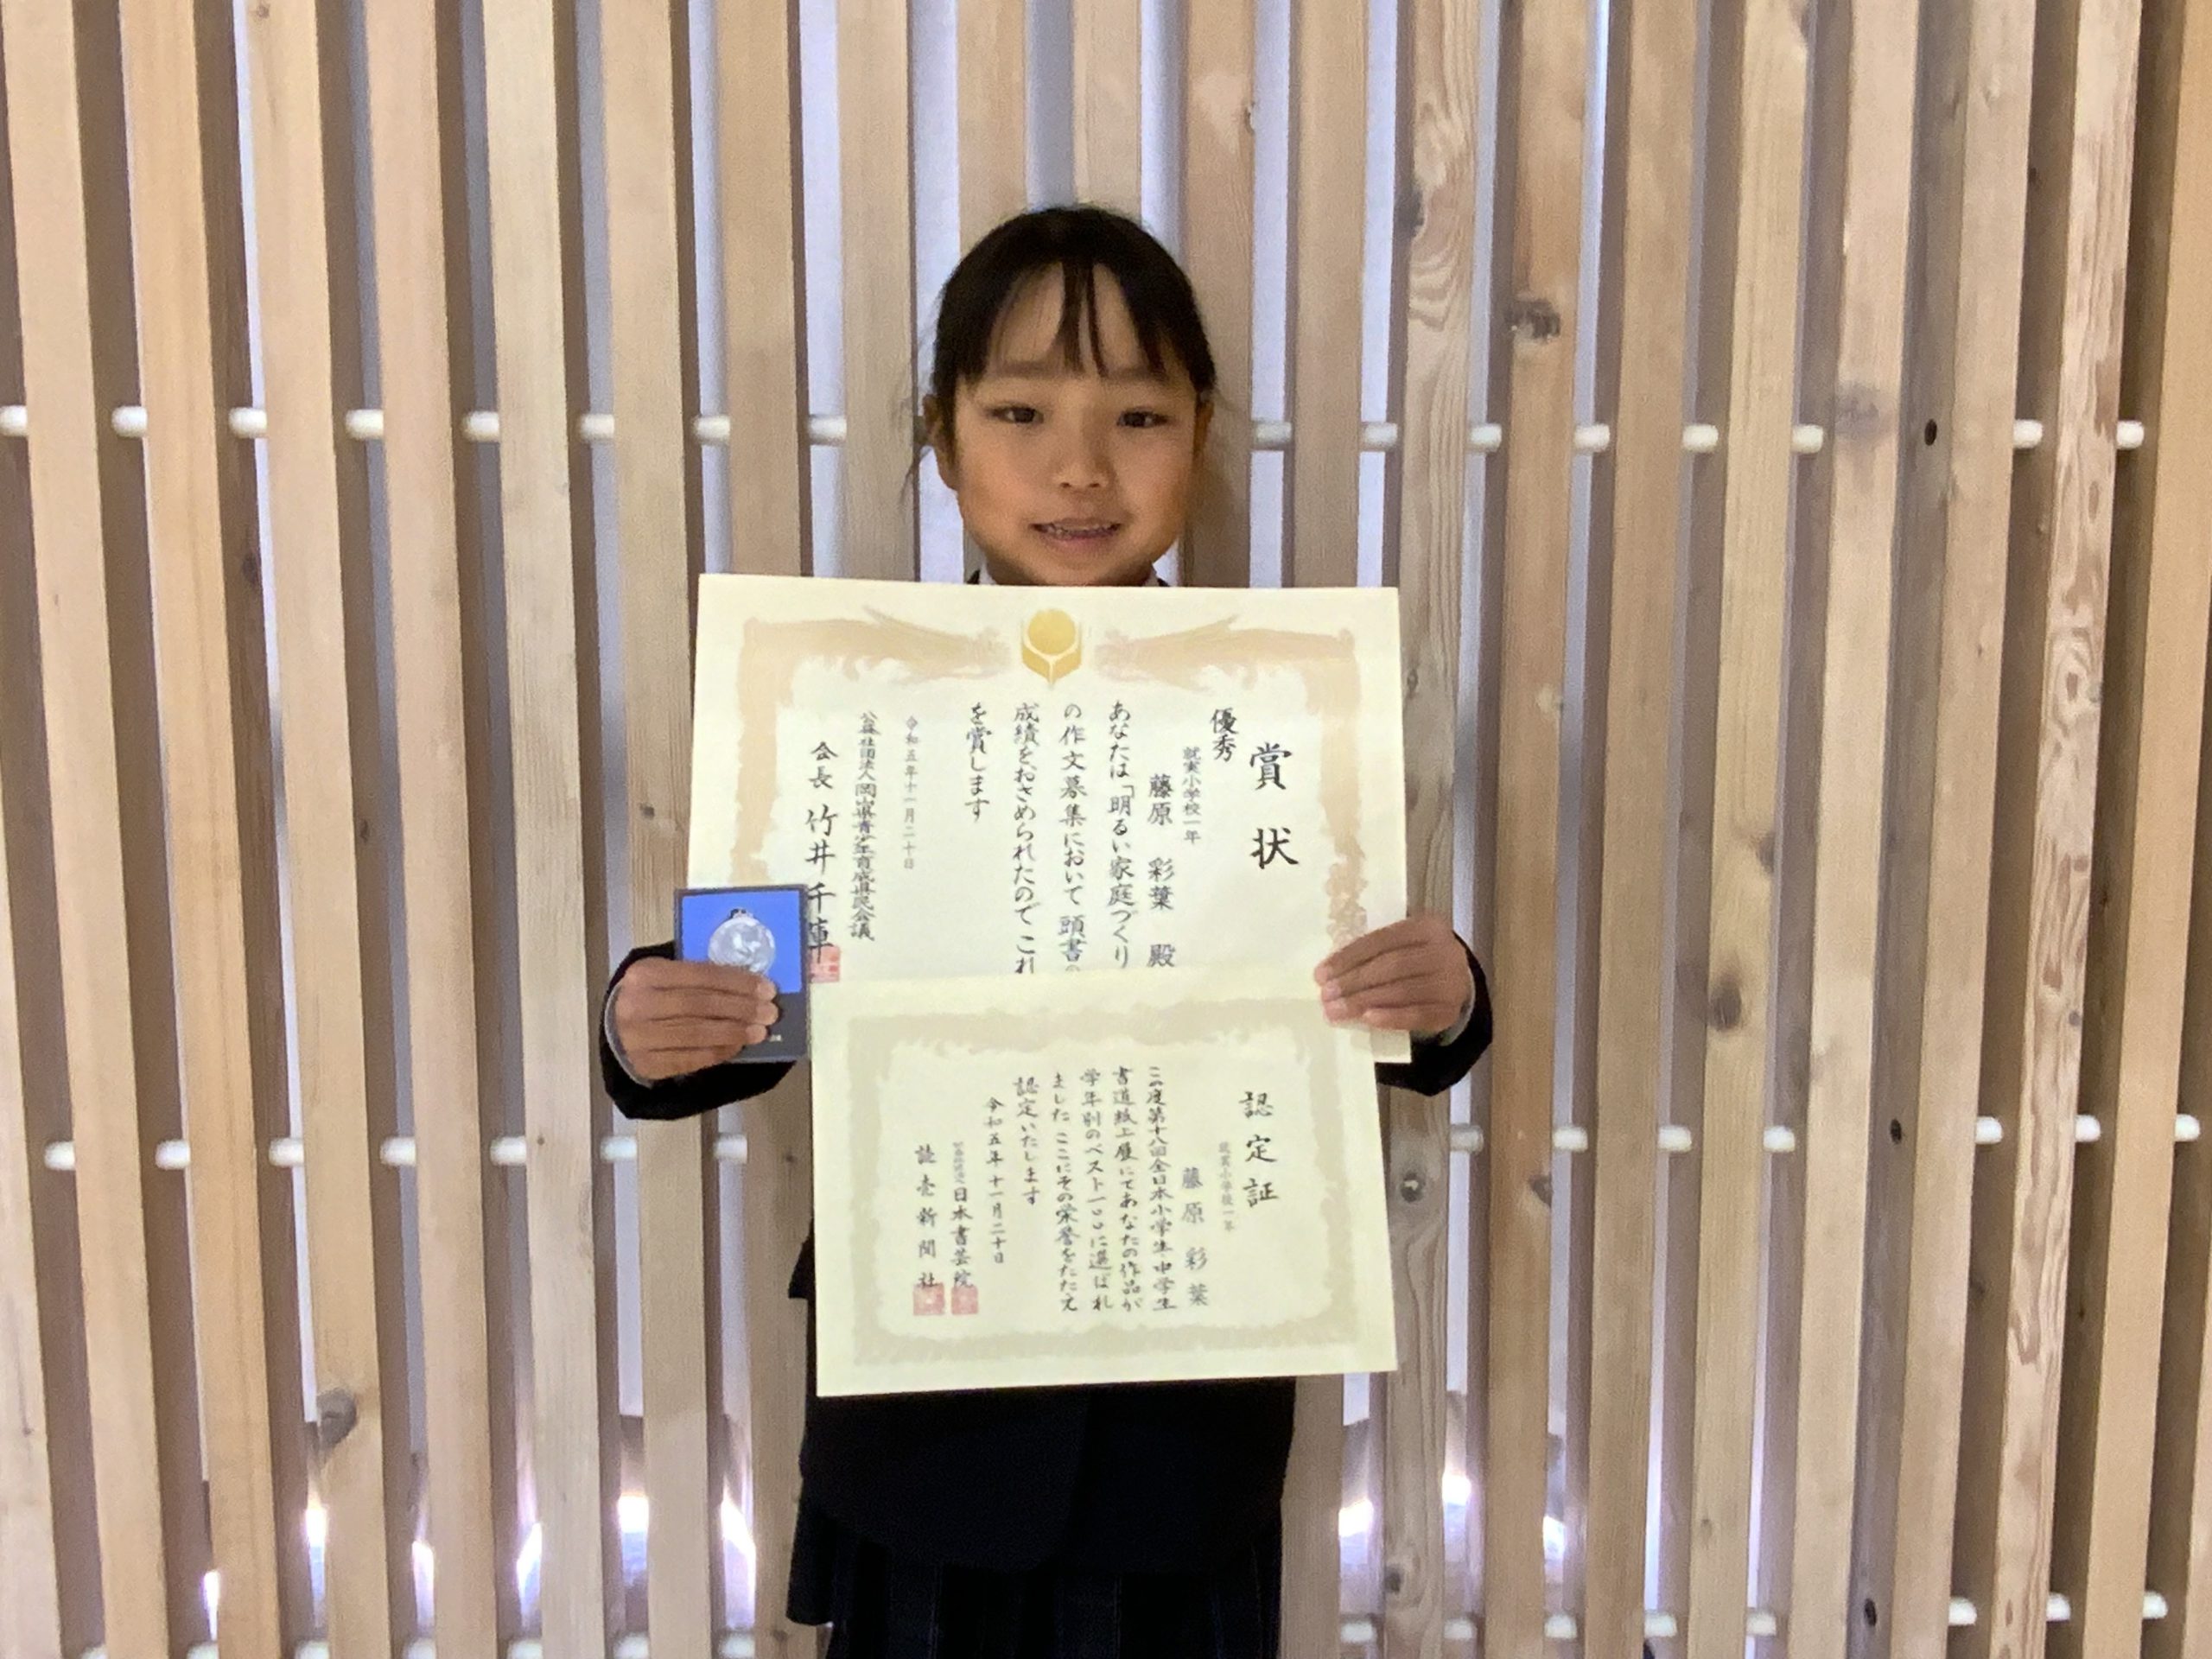 賞状
優秀
就実小学校一年
藤原 彩葉 殿
あなたは「明るい家庭づくり
の作文募集において頭書の
成績をおさめられたのでこれ
を賞します
令和五年十一月二十日
公益社団法人岡山県青少年育成県民会議
会長 竹井千庫
認定証
就実小学校一年
藤原 彩葉
この度第十八回全日本小学生・中学生
書道紙上展にてあなたの作品が
学年別のベスト一〇〇に選ばれ
ました ここにその栄誉をたたえ
認定いたします
令和五年十一月二十日
日本書芸院
読売新聞社